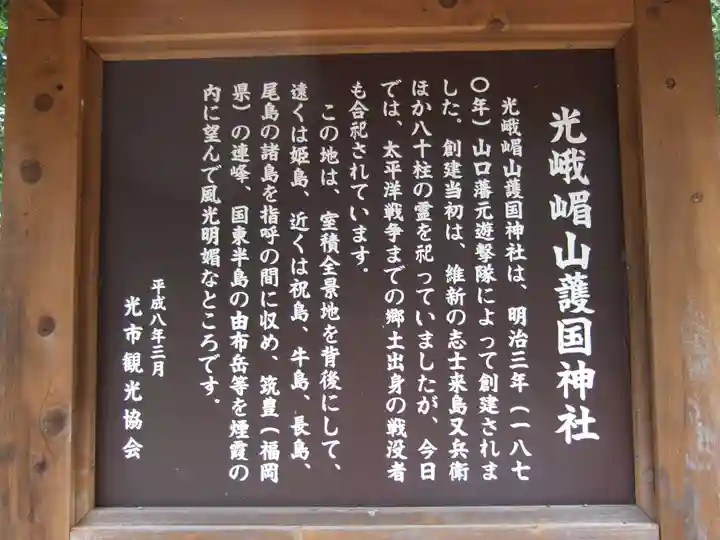 光峨嵋山護国神社
光峨嵋山護国神社は、明治三年（一八七
〇年）山口藩元遊撃隊によって創建されま
した。創建当初は、維新の志士来島又兵衛
ほか八十柱の霊を祀っていましたが、今日
では、太平洋戦争までの郷土出身の戦没者
も合祀されています。
この地は、室積全景地を背後にして、
遠くは姫島、近くは祝島、牛島、長島、
尾島の諸島を指呼の間に収め、筑豊（福岡
県）の連峰、国東半島の由布岳等を煙霞の
内に望んで風光明媚なところです。
平成八年三月
光市観光協会